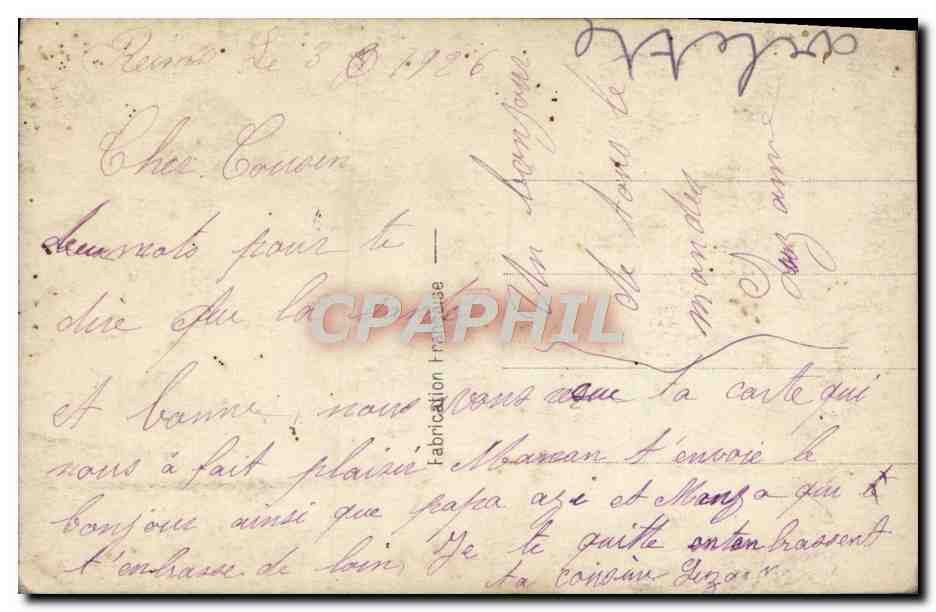 Reims Le 3 8 1926
Cher Cousin
deux mots pour te
dire que la santé
et bonne, nous avons reçue ta carte qui
nous à fait plaisir Maman t'envoie le
bonjour ainsi que papa azi et Manza qui
t'embrasse de loin, Je te quitte en t'embrassent
ta cousine
Un bonjour
de tous le
mandes
arlette
Fabrication Française
CPAPHIL